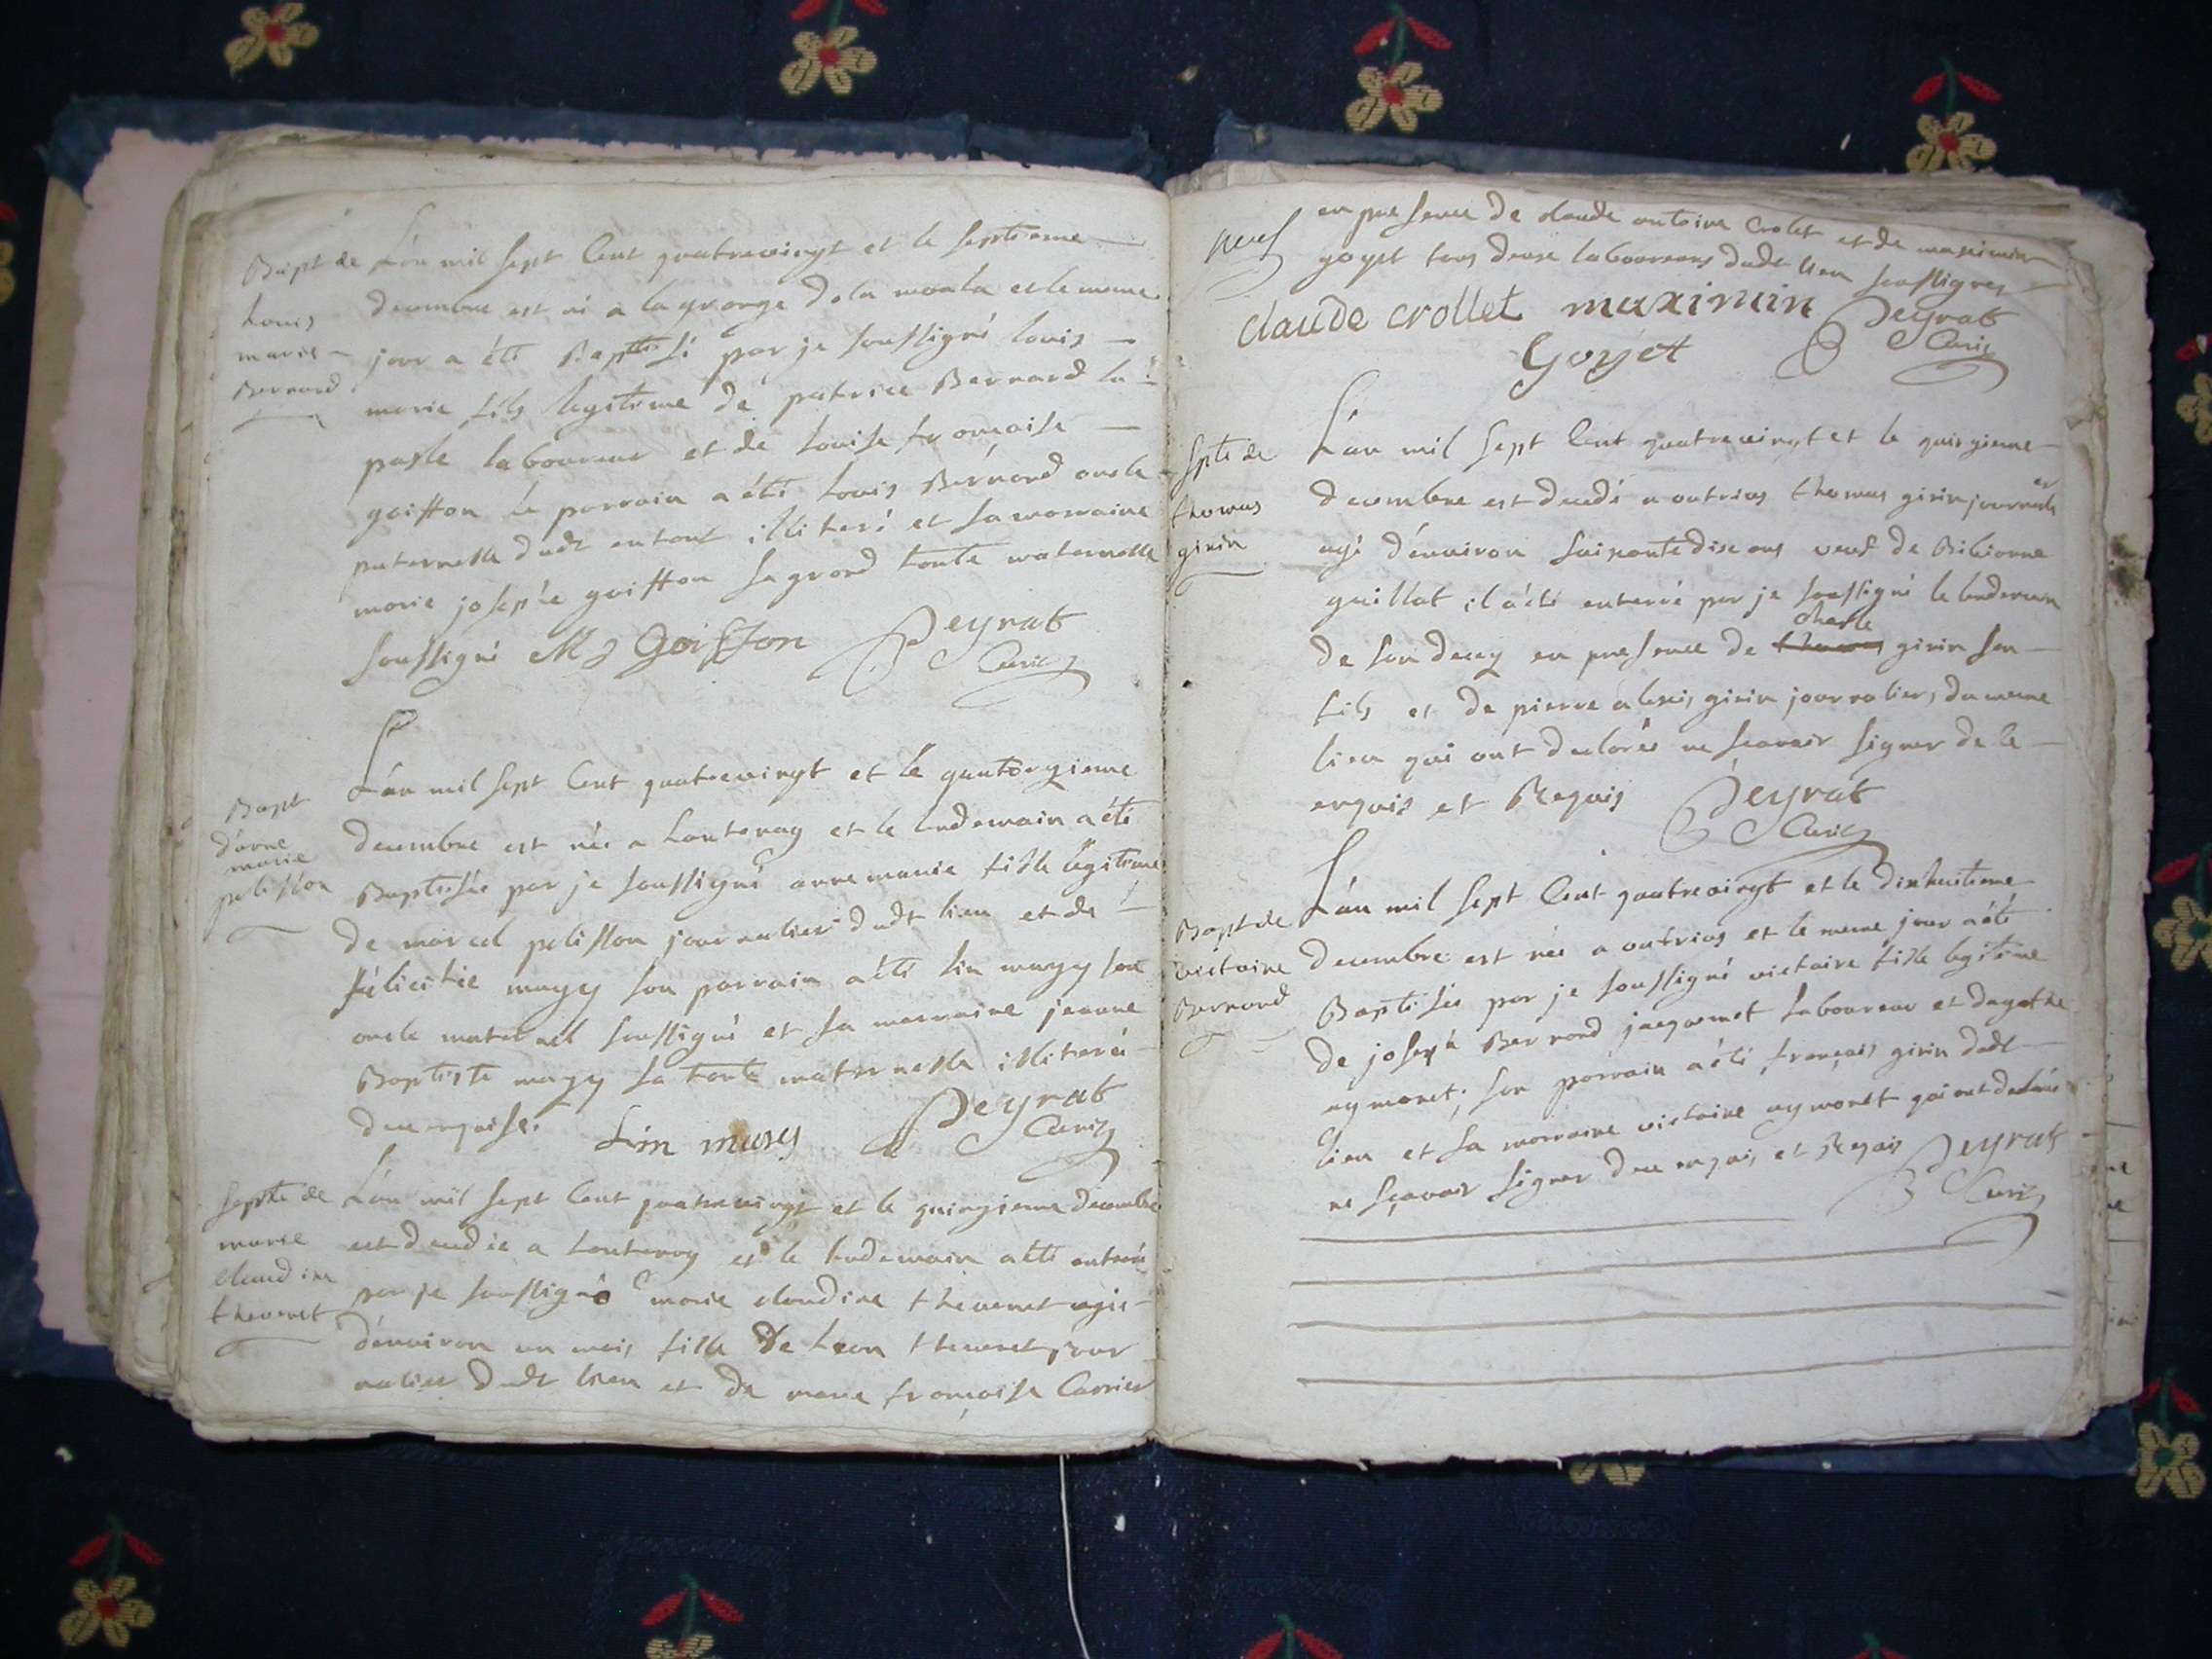 Bapt de
Louis
marie
Bernard
L'an mil sept Cent quatrevingt et le septieme
decembre est né a la grange de la moula et le meme
jour a été Baptisé par je soussigné louis
marie fils legitime de patrice Bernard la
paste laboureur et de louise françoise
goiffon le parrain a été louis Bernard oncle
paternelle dudt entout illiteré et sa marraine
marie josephe goiffon sa grand tante maternelle
soussigné M J Goiffon Peyrat
Curé
Bapt
d'anne
marie
pelisson
L'an mil sept Cent quatrevingt et le quatorzieme
decembre est née a Lantenay et le lendemain a été
Baptisée par je soussigné anne marie fille legitime
de marcel pelisson journalier dudt lieu et de
félicitée murys son parrain a été lin murys son
oncle maternel soussigné et sa marraine jeanne
Baptiste murys sa tante maternelle illiteré
de ce requise. Lin murys Peyrat
Curé
septe de
marie
claudine
thevenet
L'an mil sept Cent quatrevingt et le quinzieme decembre
est decedée a Lantenay et le lendemain a été enterrée
par je soussigné marie claudine thevenet agée
d'environ un mois fille de leon thevenet jour
nalier dudt lieu et de marie françoise Carrier
neuf
en presence de claude antoine Crolet et de maximin
goyet tous deux laboureurs dudt lieu soussignes
claude crollet maximin Peyrat
Goyet Curé
spte de
thomas
girin
L'an mil sept Cent quatrevingt et le quinzieme
decembre est decedé a outrias thomas girin journalier
agé d'environ soixante dix ans veuf de Bibianne
guillot il a été enterré par je soussigné le lendemain
de son decez en presence de charle girin son
fils et de pierre alexis girin journaliers du meme
lieu qui ont declarés ne sçavoir signer de ce
enquis et Requis Peyrat
Curé
Bapt de
victoire
Bernard
L'an mil sept Cent quatrevingt et le dixhuitieme
decembre est née a outrias et le meme jour a été
Baptisée par je soussigné victoire fille legitime
de joseph Bernard jacquemet laboureur et dagathe
aymonet; son parrain a été françois girin dudt
lieu et sa marraine victoire aymonet qui ont declarés
ne sçavoir signer de ce enquis et Requis Peyrat
Curé